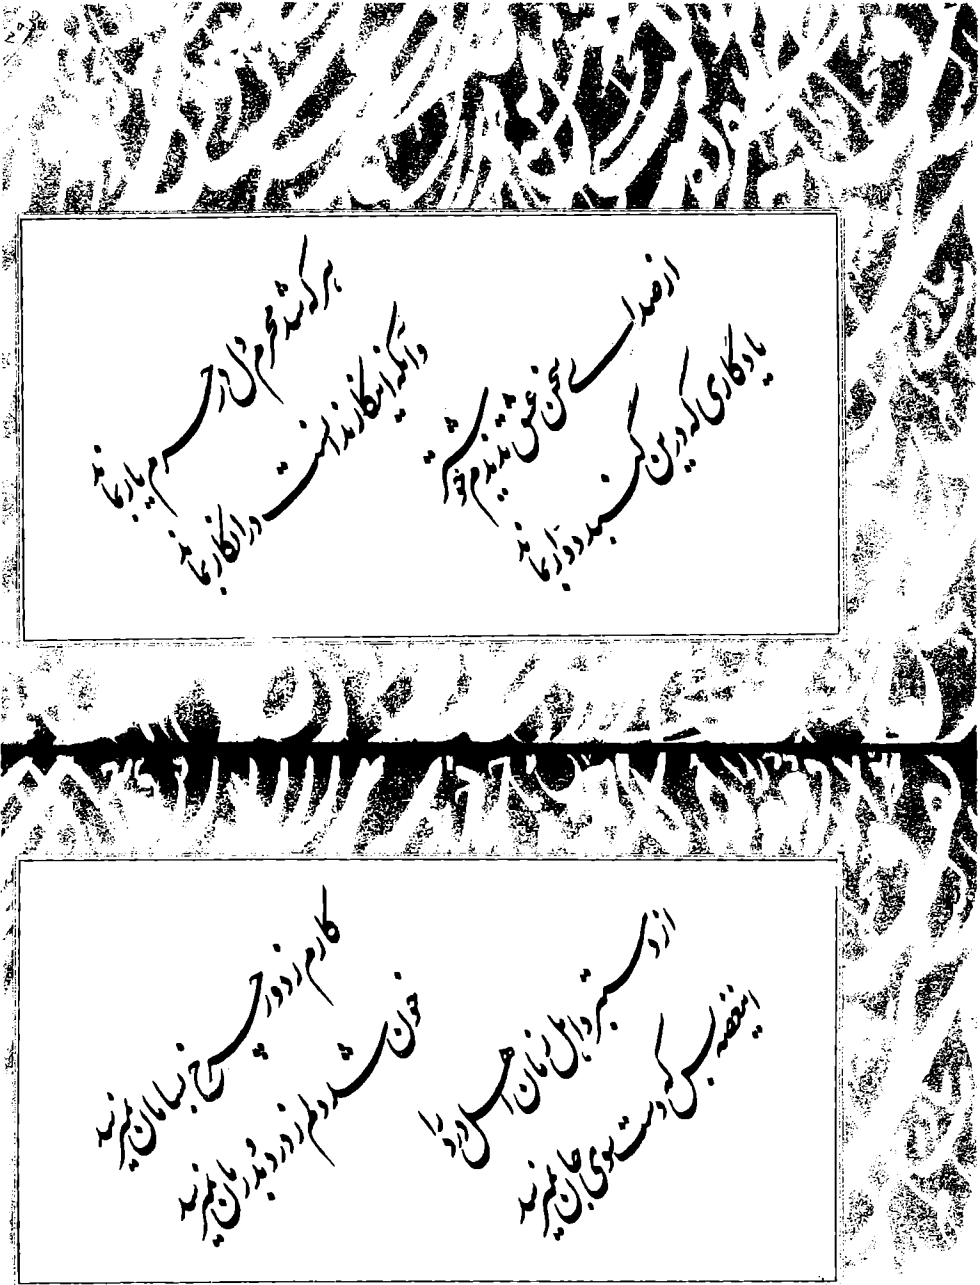 هر که شد محرم دل در حرم یار بماند
وآنکه این کار ندانست در انکار بماند
از صدای سخن عشق ندیدم خوشتر
یادگاری که درین گنبد دوار بماند
کارم ز دور چرخ بسامان نمیرسد
خون شد دلم ز درد و بدرمان نمیرسد
از دستبرد اهل زمان اهل درد را
این غصه بس که دست سوی جان نمیرسد